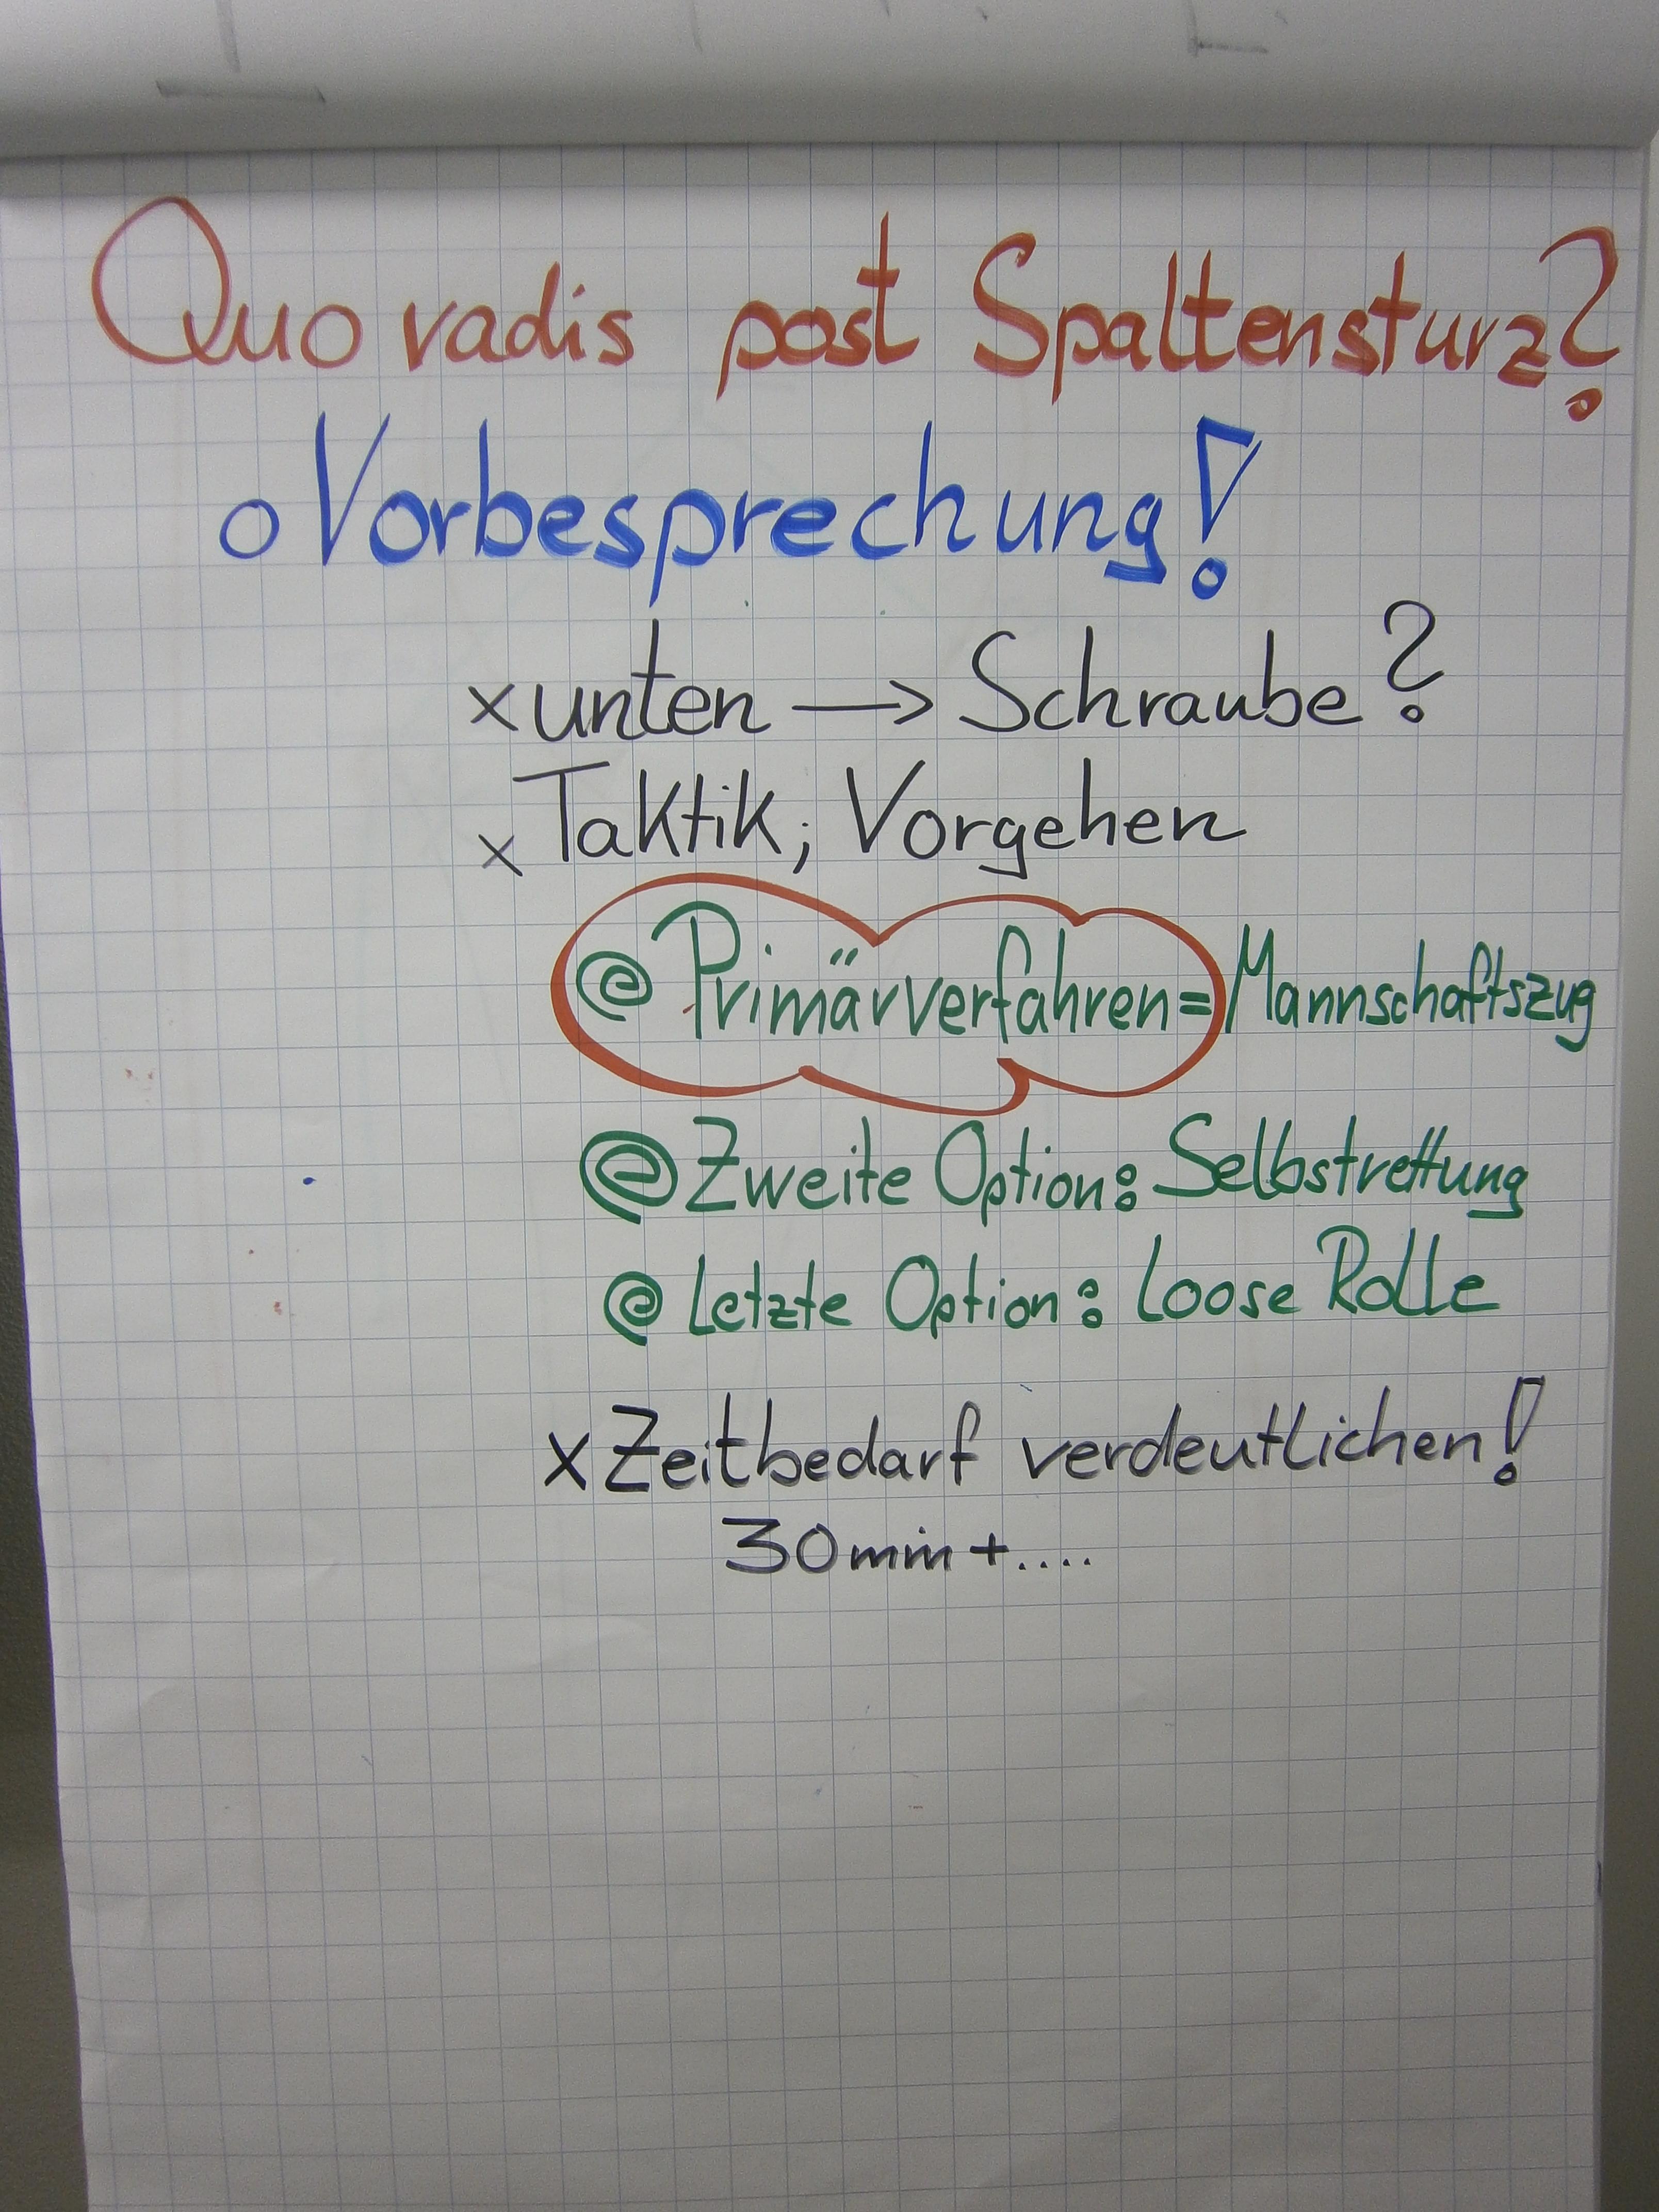 Quo vadis post Spaltensturz?
o Vorbesprechung!
x unten → Schraube?
x Taktik; Vorgehen
@ Primärverfahren = Mannschaftszug
@ Zweite Option: Selbstrettung
@ Letzte Option: Loose Rolle
x Zeitbedarf verdeutlichen!
30min+....